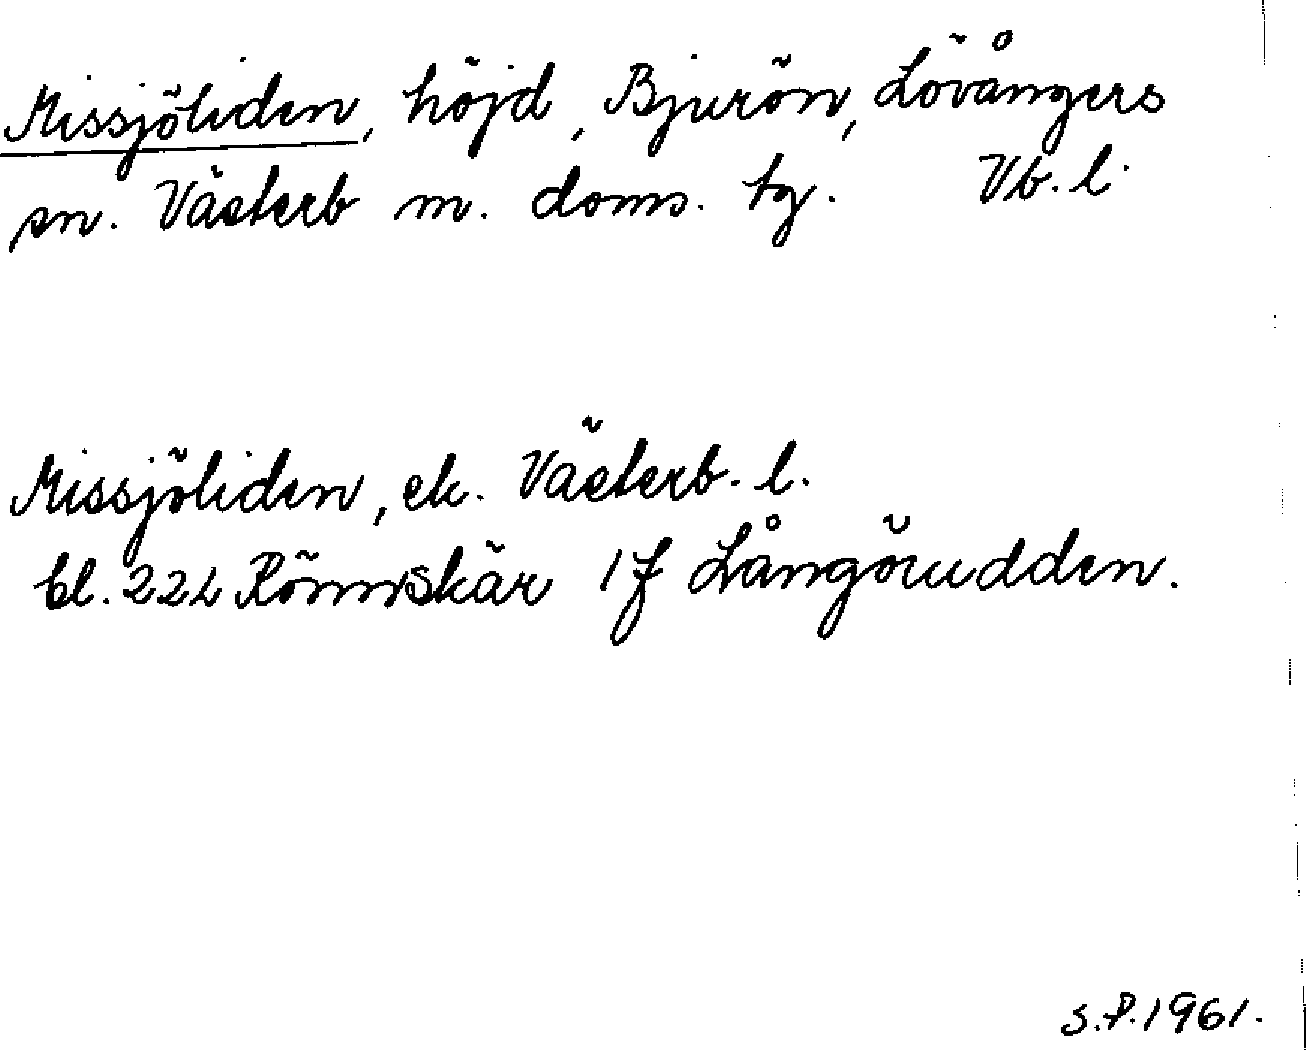 Missjöliden, höjd, Bjurön, Lövångers
sn. Västerb m. doms. tg. Vb. l.
Missjöliden, ek. Västerb. l.
bl. 22L Rönnskär 1f Långörudden.
S.P. 1961.